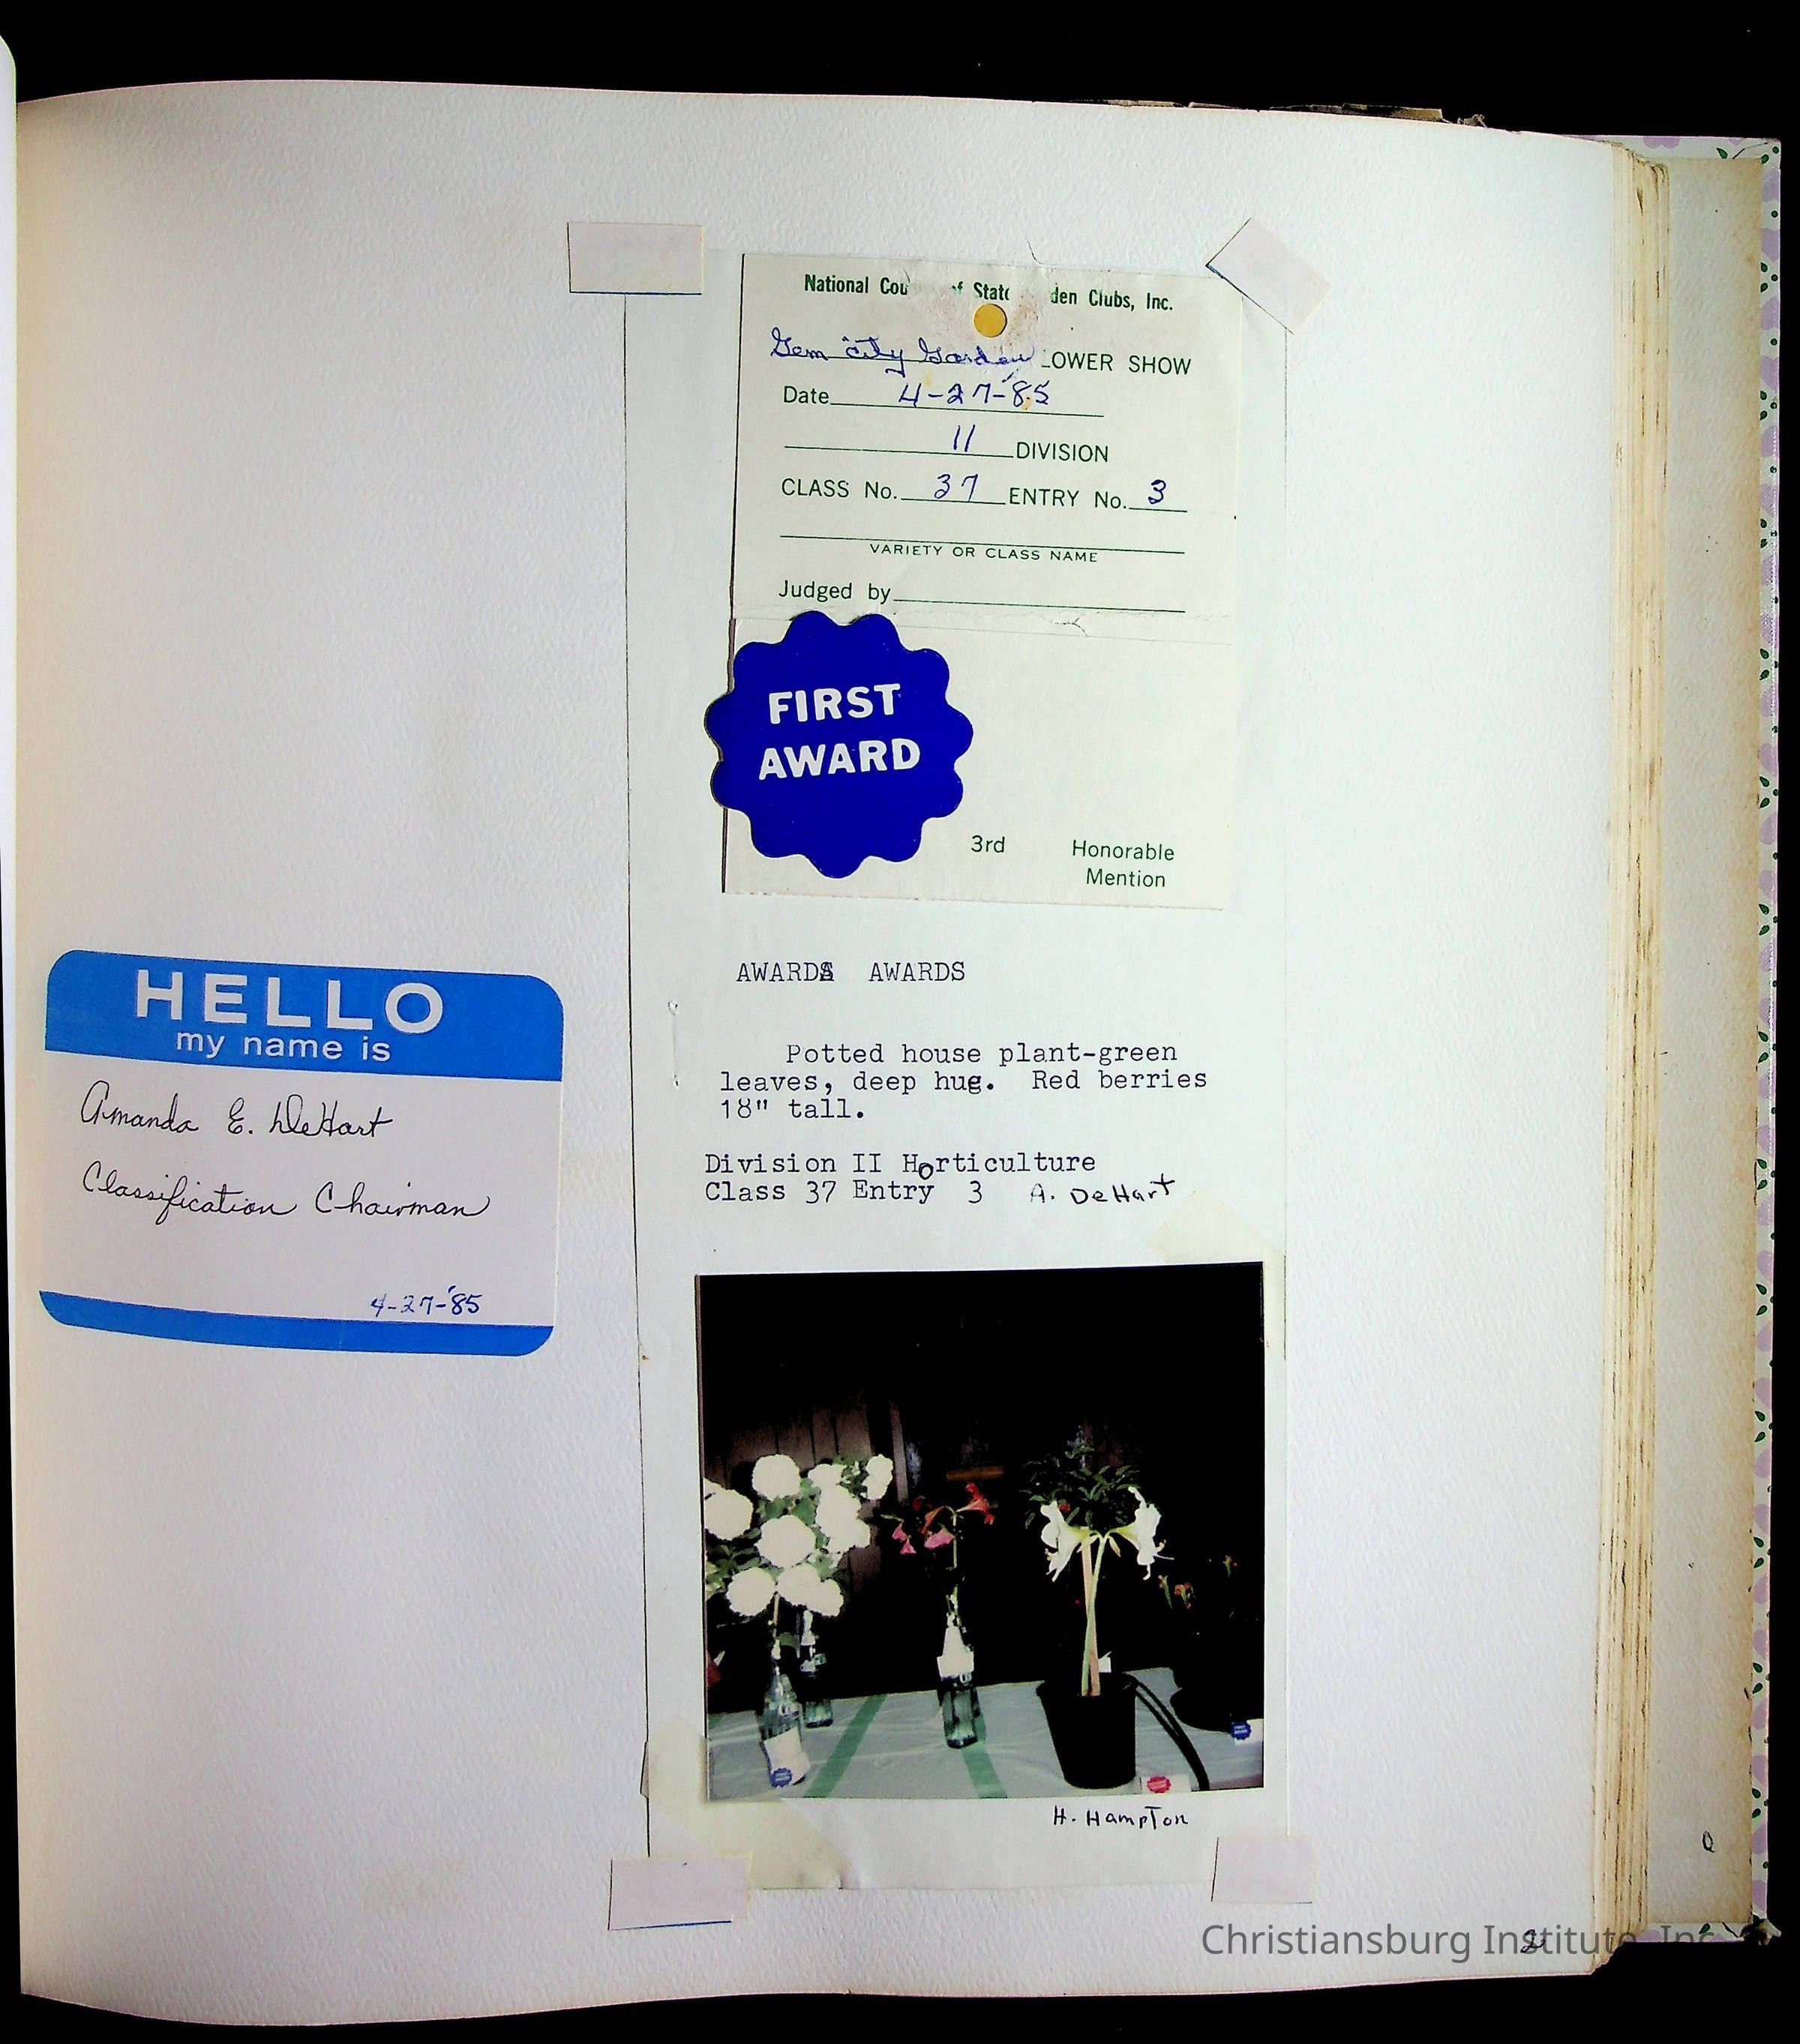 National Cou of State den Clubs, Inc.
Gem city Garden LOWER SHOW
Date 4-27-'85
11 DIVISION
CLASS No. 37 ENTRY No. 3
VARIETY OR CLASS NAME
Judged by
FIRST
AWARD
3rd Honorable
Mention
HELLO
my name is
Amanda E. DeHart
Classification Chairman
4-27-'85
AWARDS AWARDS
Potted house plant-green
leaves, deep hug. Red berries
18" tall.
Division II Horticulture
Class 37 Entry 3 A. DeHart
H. Hampton
Christiansburg Institute, Inc.
2